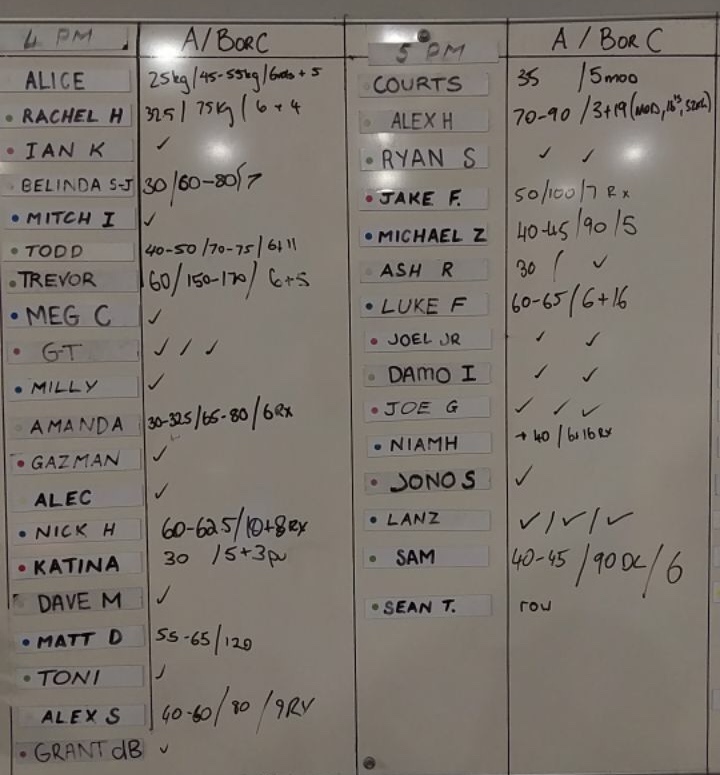 4 PM A/BORC
ALICE 25kg/45-55kg/6 + 5
RACHEL H 325/75kg/6+4
IAN K ✓
BELINDA S-J 30/60-80/7
MITCH I ✓
TODD 40-50/70-75/6+11
TREVOR 60/150-170/6+5
MEG C ✓
GT ✓/✓
MILLY ✓
AMANDA 30-32.5/65-80/6RX
GAZMAN ✓
ALEC ✓
NICK H 60-62.5/10+8RX
KATINA 30 /5+3pu
DAVE M ✓
MATT D 55-65/120
TONI ✓
ALEX S 40-60/80/9RX
GRANT dB ✓
5 PM A/BORC
COURTS 35 /5mod
ALEX H 70-90/3+19(MOD,
RYAN S ✓ ✓
JAKE F. 50/100/7 Rx
MICHAEL Z 40-45/90/5
ASH R 30 / ✓
LUKE F 60-65/6+16
JOEL JR ✓ ✓
DAMO I ✓ ✓
JOE G ✓ ✓ ✓
NIAMH 40/6+16Rx
JONO S ✓
LANZ ✓/✓/✓
SAM 40-45/90DL/6
SEAN T. row